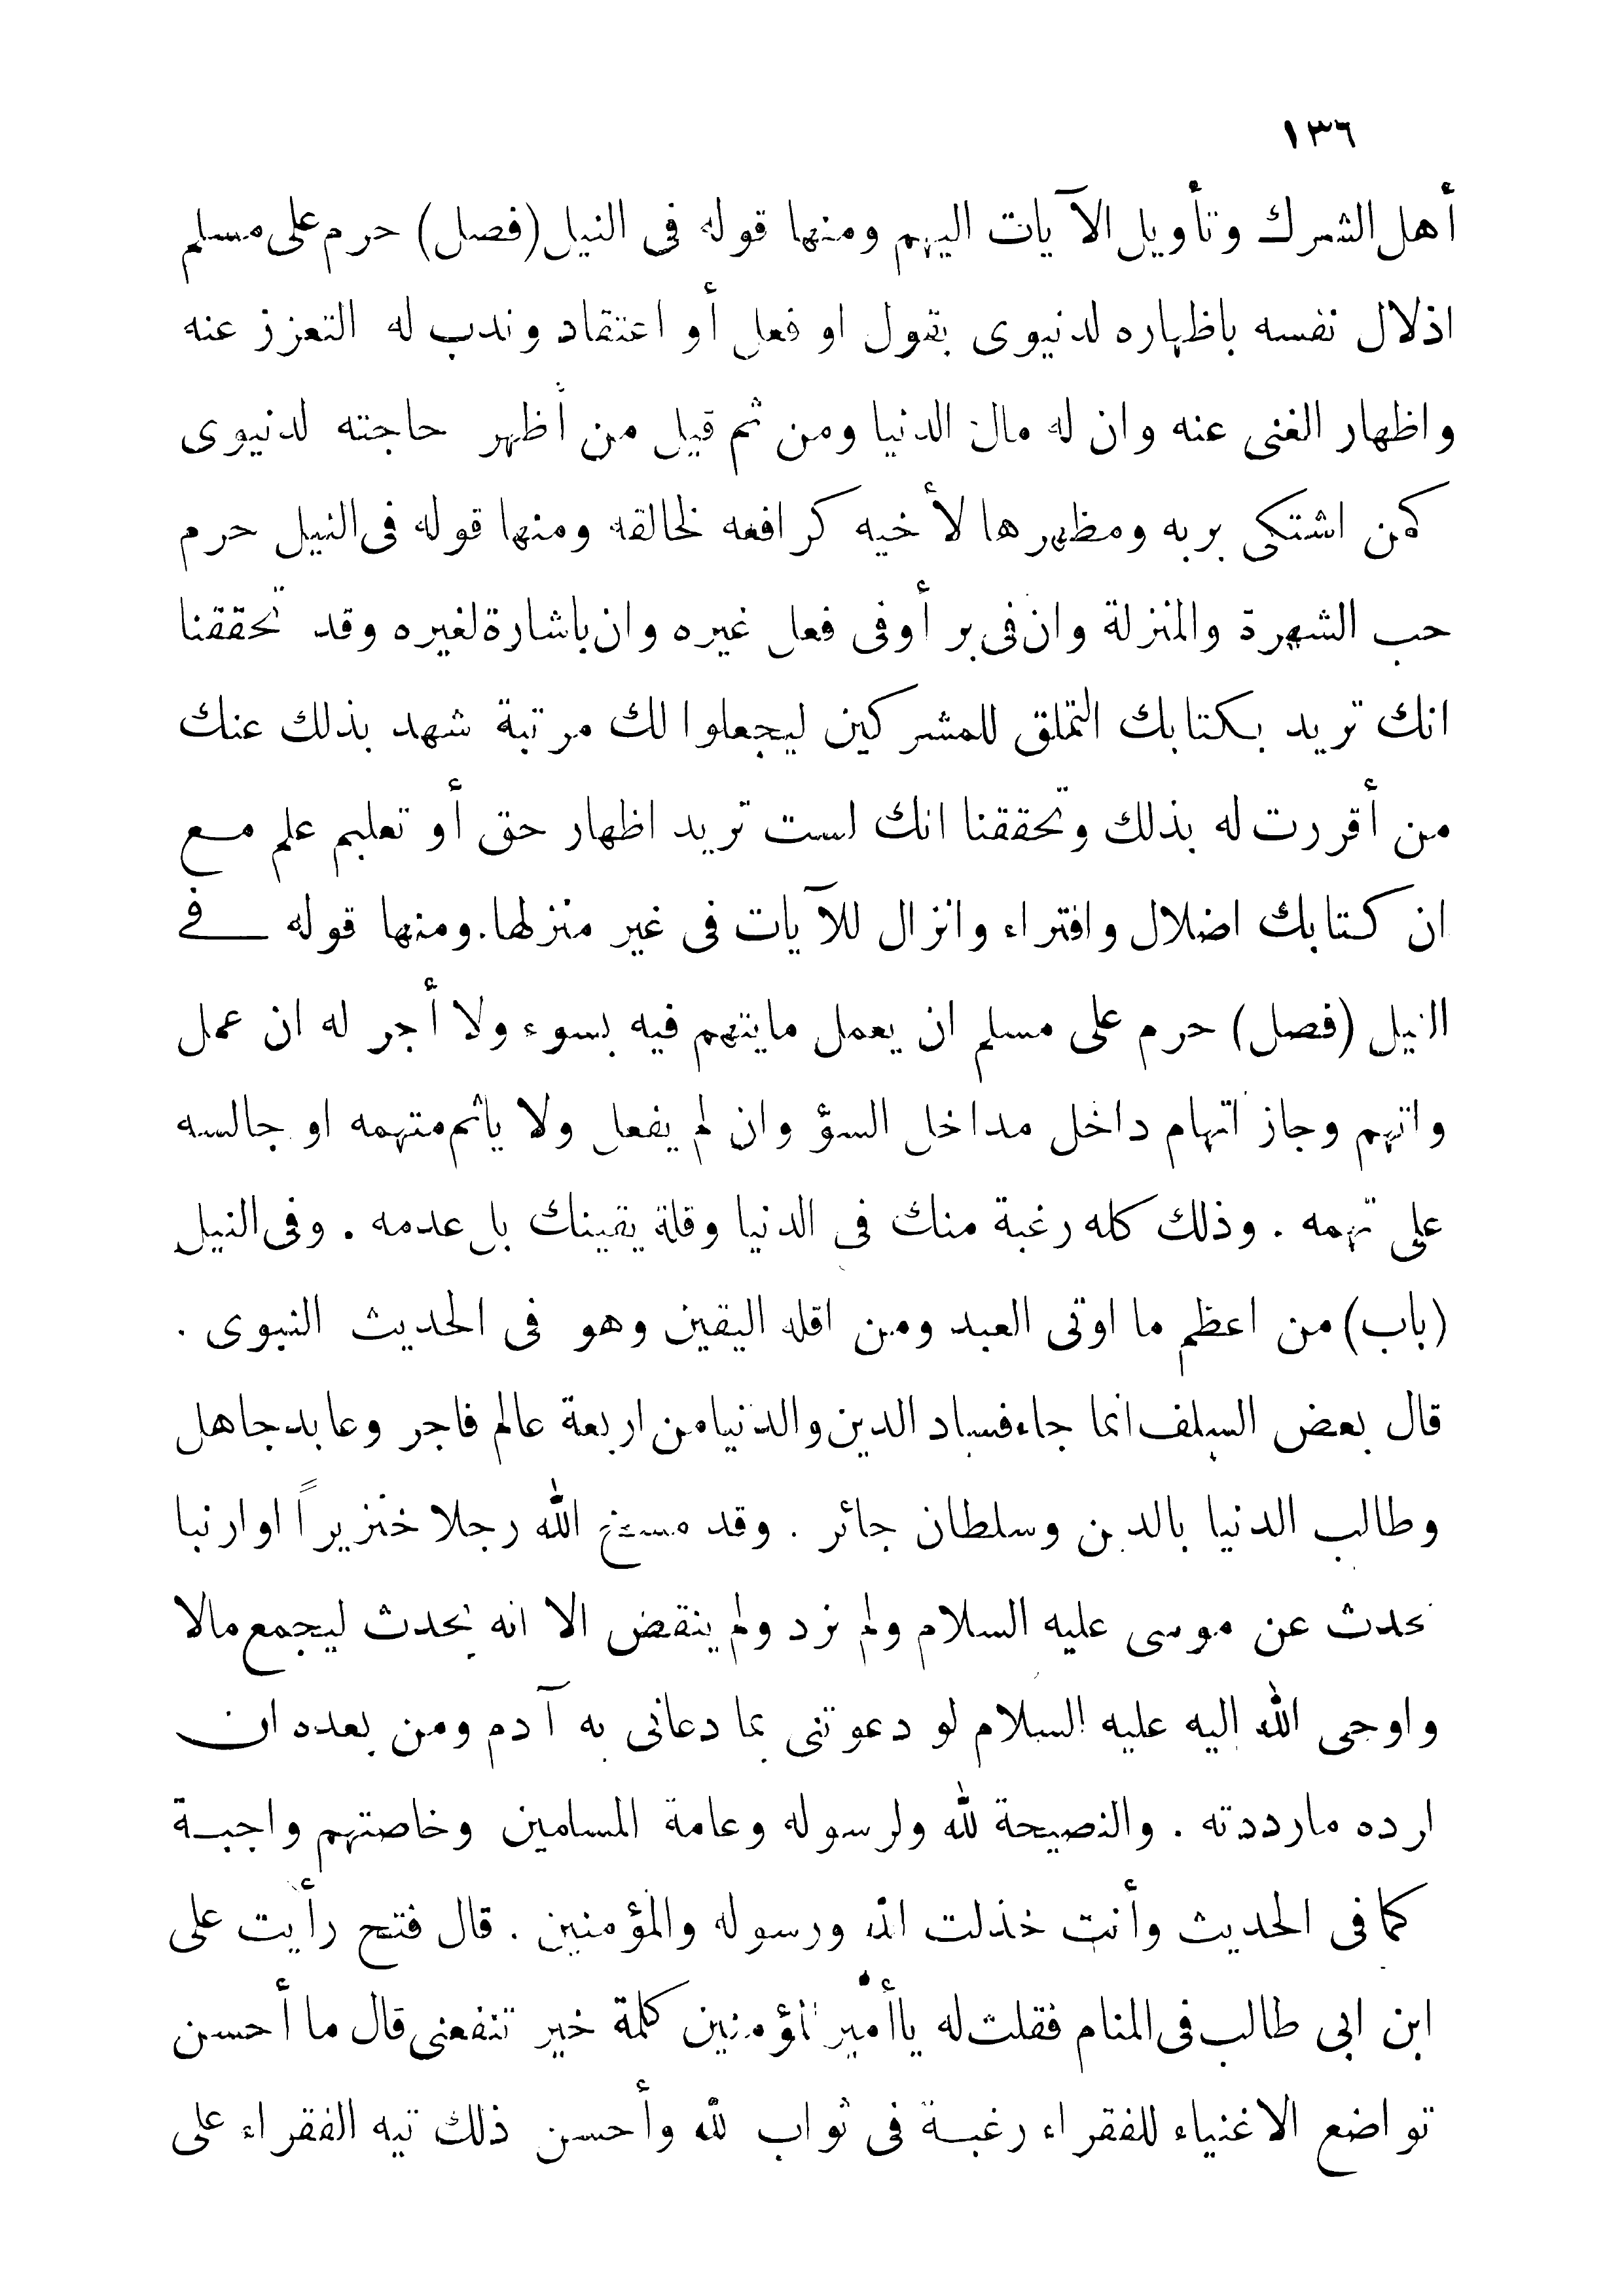 ١٣٦
أهل الشرك وتأويل الآيات اليهم ومنها قوله فى النيل (فصل) حرم على مسلم
اذلال نفسه باظهاره لدنيوى بقول او فعل أو اعتقاد وندب له التعزز عنه
واظهار الغنى عنه وان له مال الدنيا ومن ثم قيل من أظهر حاجته لدنيوى
كمن اشتكى بربه ومظهرها لأخيه كرافعه لخالقه ومنها قوله فى النيل حرم
حب الشهرة والمنزلة وان فى بر أوفى فعل غيره وان باشارة لغيره وقد تحققنا
انك تريد بكتابك التملق للمشركين ليجعلوا لك مرتبة شهد بذلك عنك
من أقررت له بذلك وتحققنا انك لست تريد اظهار حق أو تعليم علم مع
ان كتابك اضلال وافتراء وانزال للآيات فى غير منزلها. ومنها قوله فى
النيل (فصل) حرم على مسلم ان يعمل مايتهم فيه بسوء ولا أجر له ان عمل
واتهم وجاز اتهام داخل مداخل السؤ وان لم يفعل ولا يأثم متهمه او جالسه
على تهمه . وذلك كله رغبة منك فى الدنيا وقلة يقينك بل عدمه . وفى النيل
(باب) من اعظم ما اوتى العبد ومن اقله اليقين وهو فى الحديث النبوى .
قال بعض السلف انما جاء فساد الدين والدنيا من اربعة عالم فاجر وعابد جاهل
وطالب الدنيا بالدين وسلطان جائر . وقد مسخ الله رجلا خنزيراً او ارنبا
يحدث عن موسى عليه السلام ولم نزد ولم ينقض الا انه يحدث ليجمع مالا
واوحى الله اليه عليه السلام لو دعوتنى بما دعانى به آدم ومن بعده ان
ارده مارددته . والنصيحة لله ولرسوله وعامة المسلمين وخاصتهم واجبة
كما فى الحديث وأنت خذلت الله ورسوله والمؤمنين . قال فتح رأيت على
ابن ابى طالب فى المنام فقلت له ياأمير المؤمنين كلمة خير تنفعنى قال ما أحسن
تواضع الاغنياء للفقراء رغبة فى ثواب لله وأحسن ذلك تيه الفقراء على